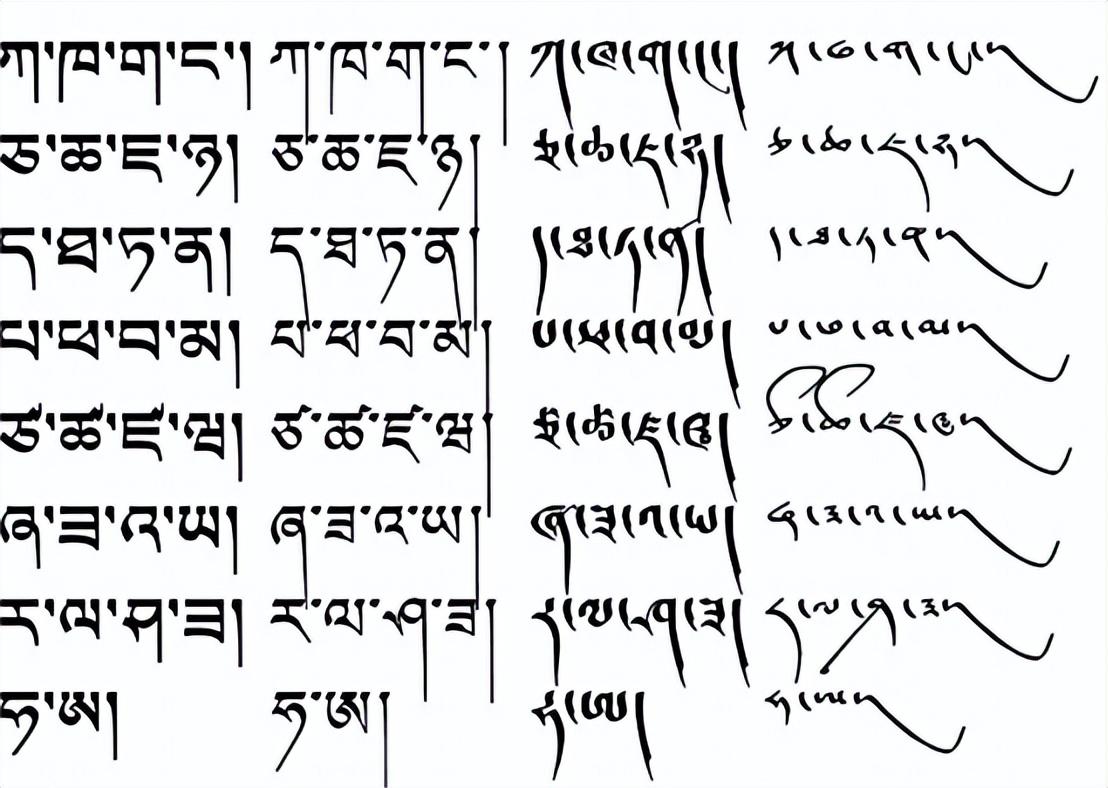 ཀ་ཁ་ག་ང་། ཀ་ཁ་ག་ང་། ཀ་ཁ་ག་ང་། ཀ་ཁ་ག་ང་།
ཅ་ཆ་ཇ་ཉ། ཅ་ཆ་ཇ་ཉ། ཅ་ཆ་ཇ་ཉ། ཅ་ཆ་ཇ་ཉ།
ད་ཐ་ཏ་ན། ད་ཐ་ཏ་ན། ད་ཐ་ཏ་ན། ད་ཐ་ཏ་ན།
པ་ཕ་བ་མ། པ་ཕ་བ་མ། པ་ཕ་བ་མ། པ་ཕ་བ་མ།
ཙ་ཚ་ཛ་ཝ། ཙ་ཚ་ཛ་ཝ། ཙ་ཚ་ཛ་ཝ། ཙ་ཚ་ཛ་ཝ།
ཞ་ཟ་འ་ཡ། ཞ་ཟ་འ་ཡ། ཞ་ཟ་འ་ཡ། ཞ་ཟ་འ་ཡ།
ར་ལ་ཤ་ཟ། ར་ལ་ཤ་ཟ། ར་ལ་ཤ་ཟ། ར་ལ་ཤ་ཟ།
ཧ་ཨ། ཧ་ཨ། ཧ་ཨ། ཧ་ཨ།